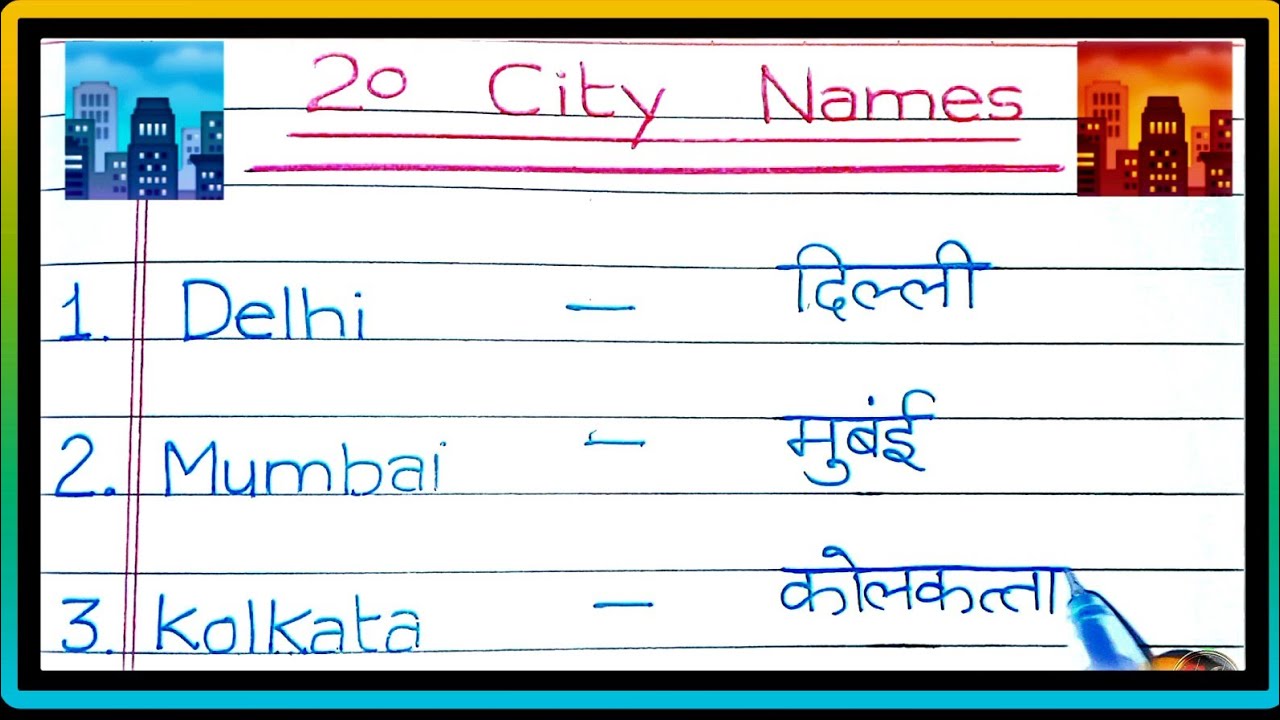 20 City Names
1. Delhi — दिल्ली
2. Mumbai — मुबंई
3. Kolkata — कोलकत्ता